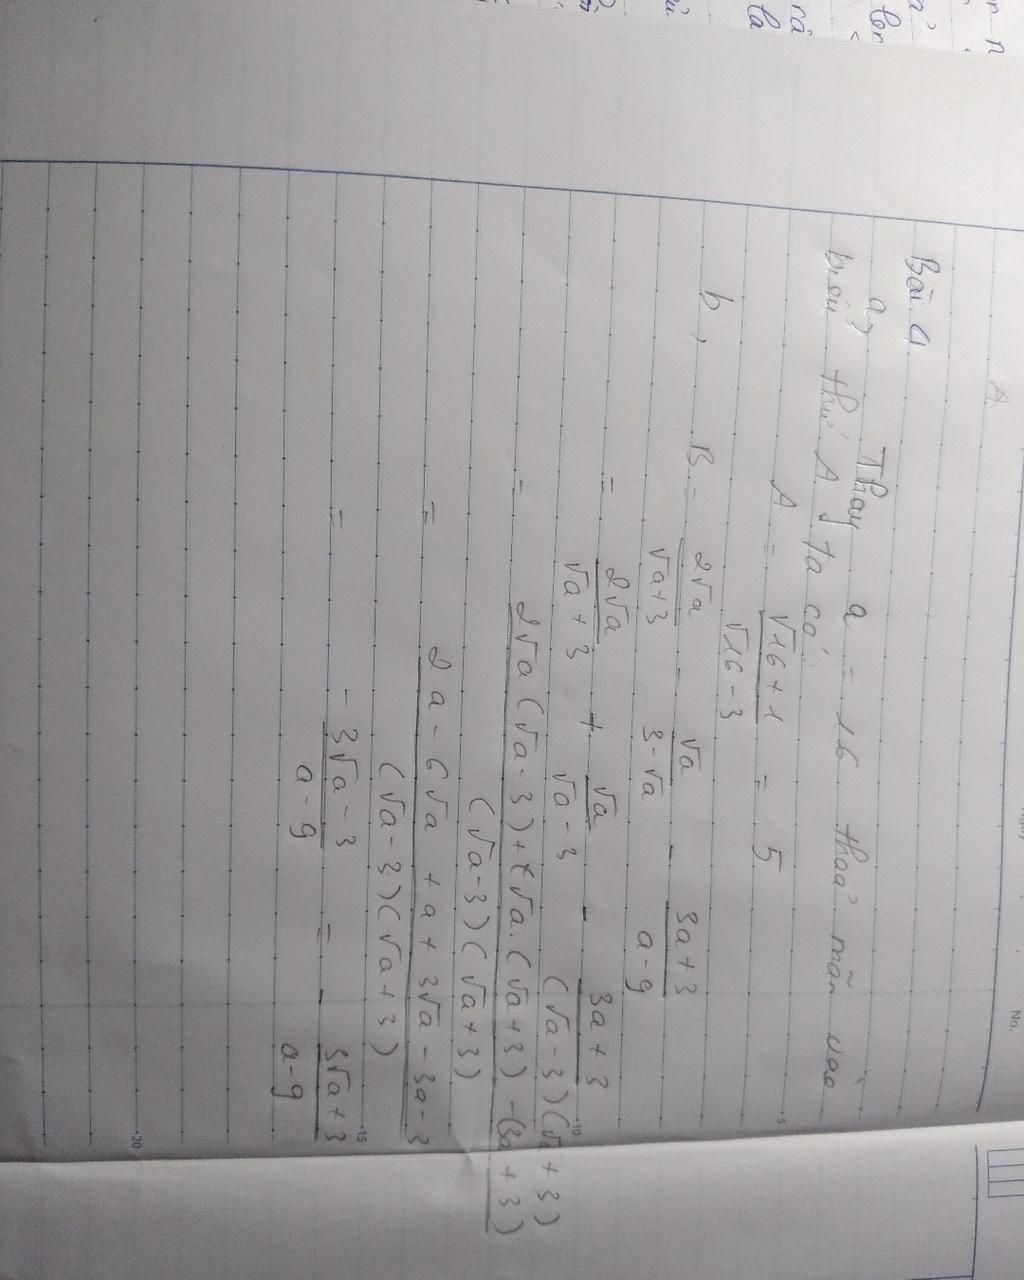 Bài 4
a) Thay a = 16 thoả mãn vào
biểu thức A ta có
A = \frac{√16 + 1}{√16 - 3} = 5
b, B = \frac{2√a}{√a + 3} - \frac{√a}{3 - √a} - \frac{3a + 3}{a - 9}
= \frac{2√a}{√a + 3} + \frac{√a}{√a - 3} - \frac{3a + 3}{(√a - 3)(√a + 3)}
= \frac{2√a(√a - 3) + √a.(√a + 3) - (3a + 3)}{(√a - 3)(√a + 3)}
= \frac{2a - 6√a + a + 3√a - 3a - 3}{(√a - 3)(√a + 3)}
= \frac{-3√a - 3}{a - 9} = - \frac{3√a + 3}{a - 9}
No.
5
10
15
20